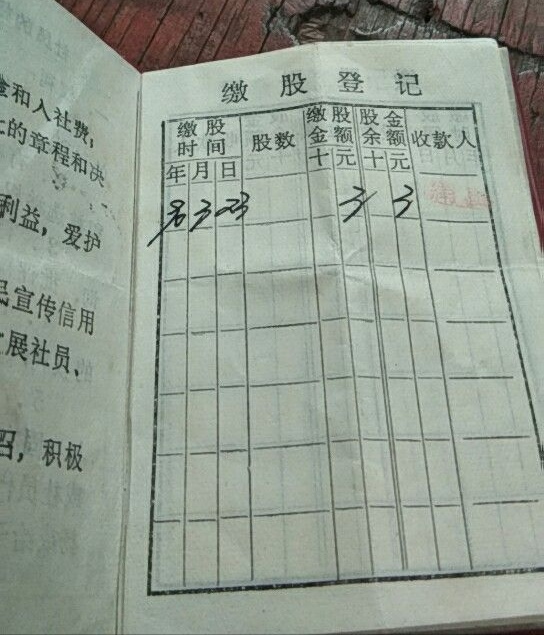 章和入社费;
的章程和决
利益，爱护
民宣传信用
展社员、
召，积极
缴股登记
缴股时间
年 月 日
股数
缴股金额
十 元
股金余额
十 元
收款人
3 23 3 3